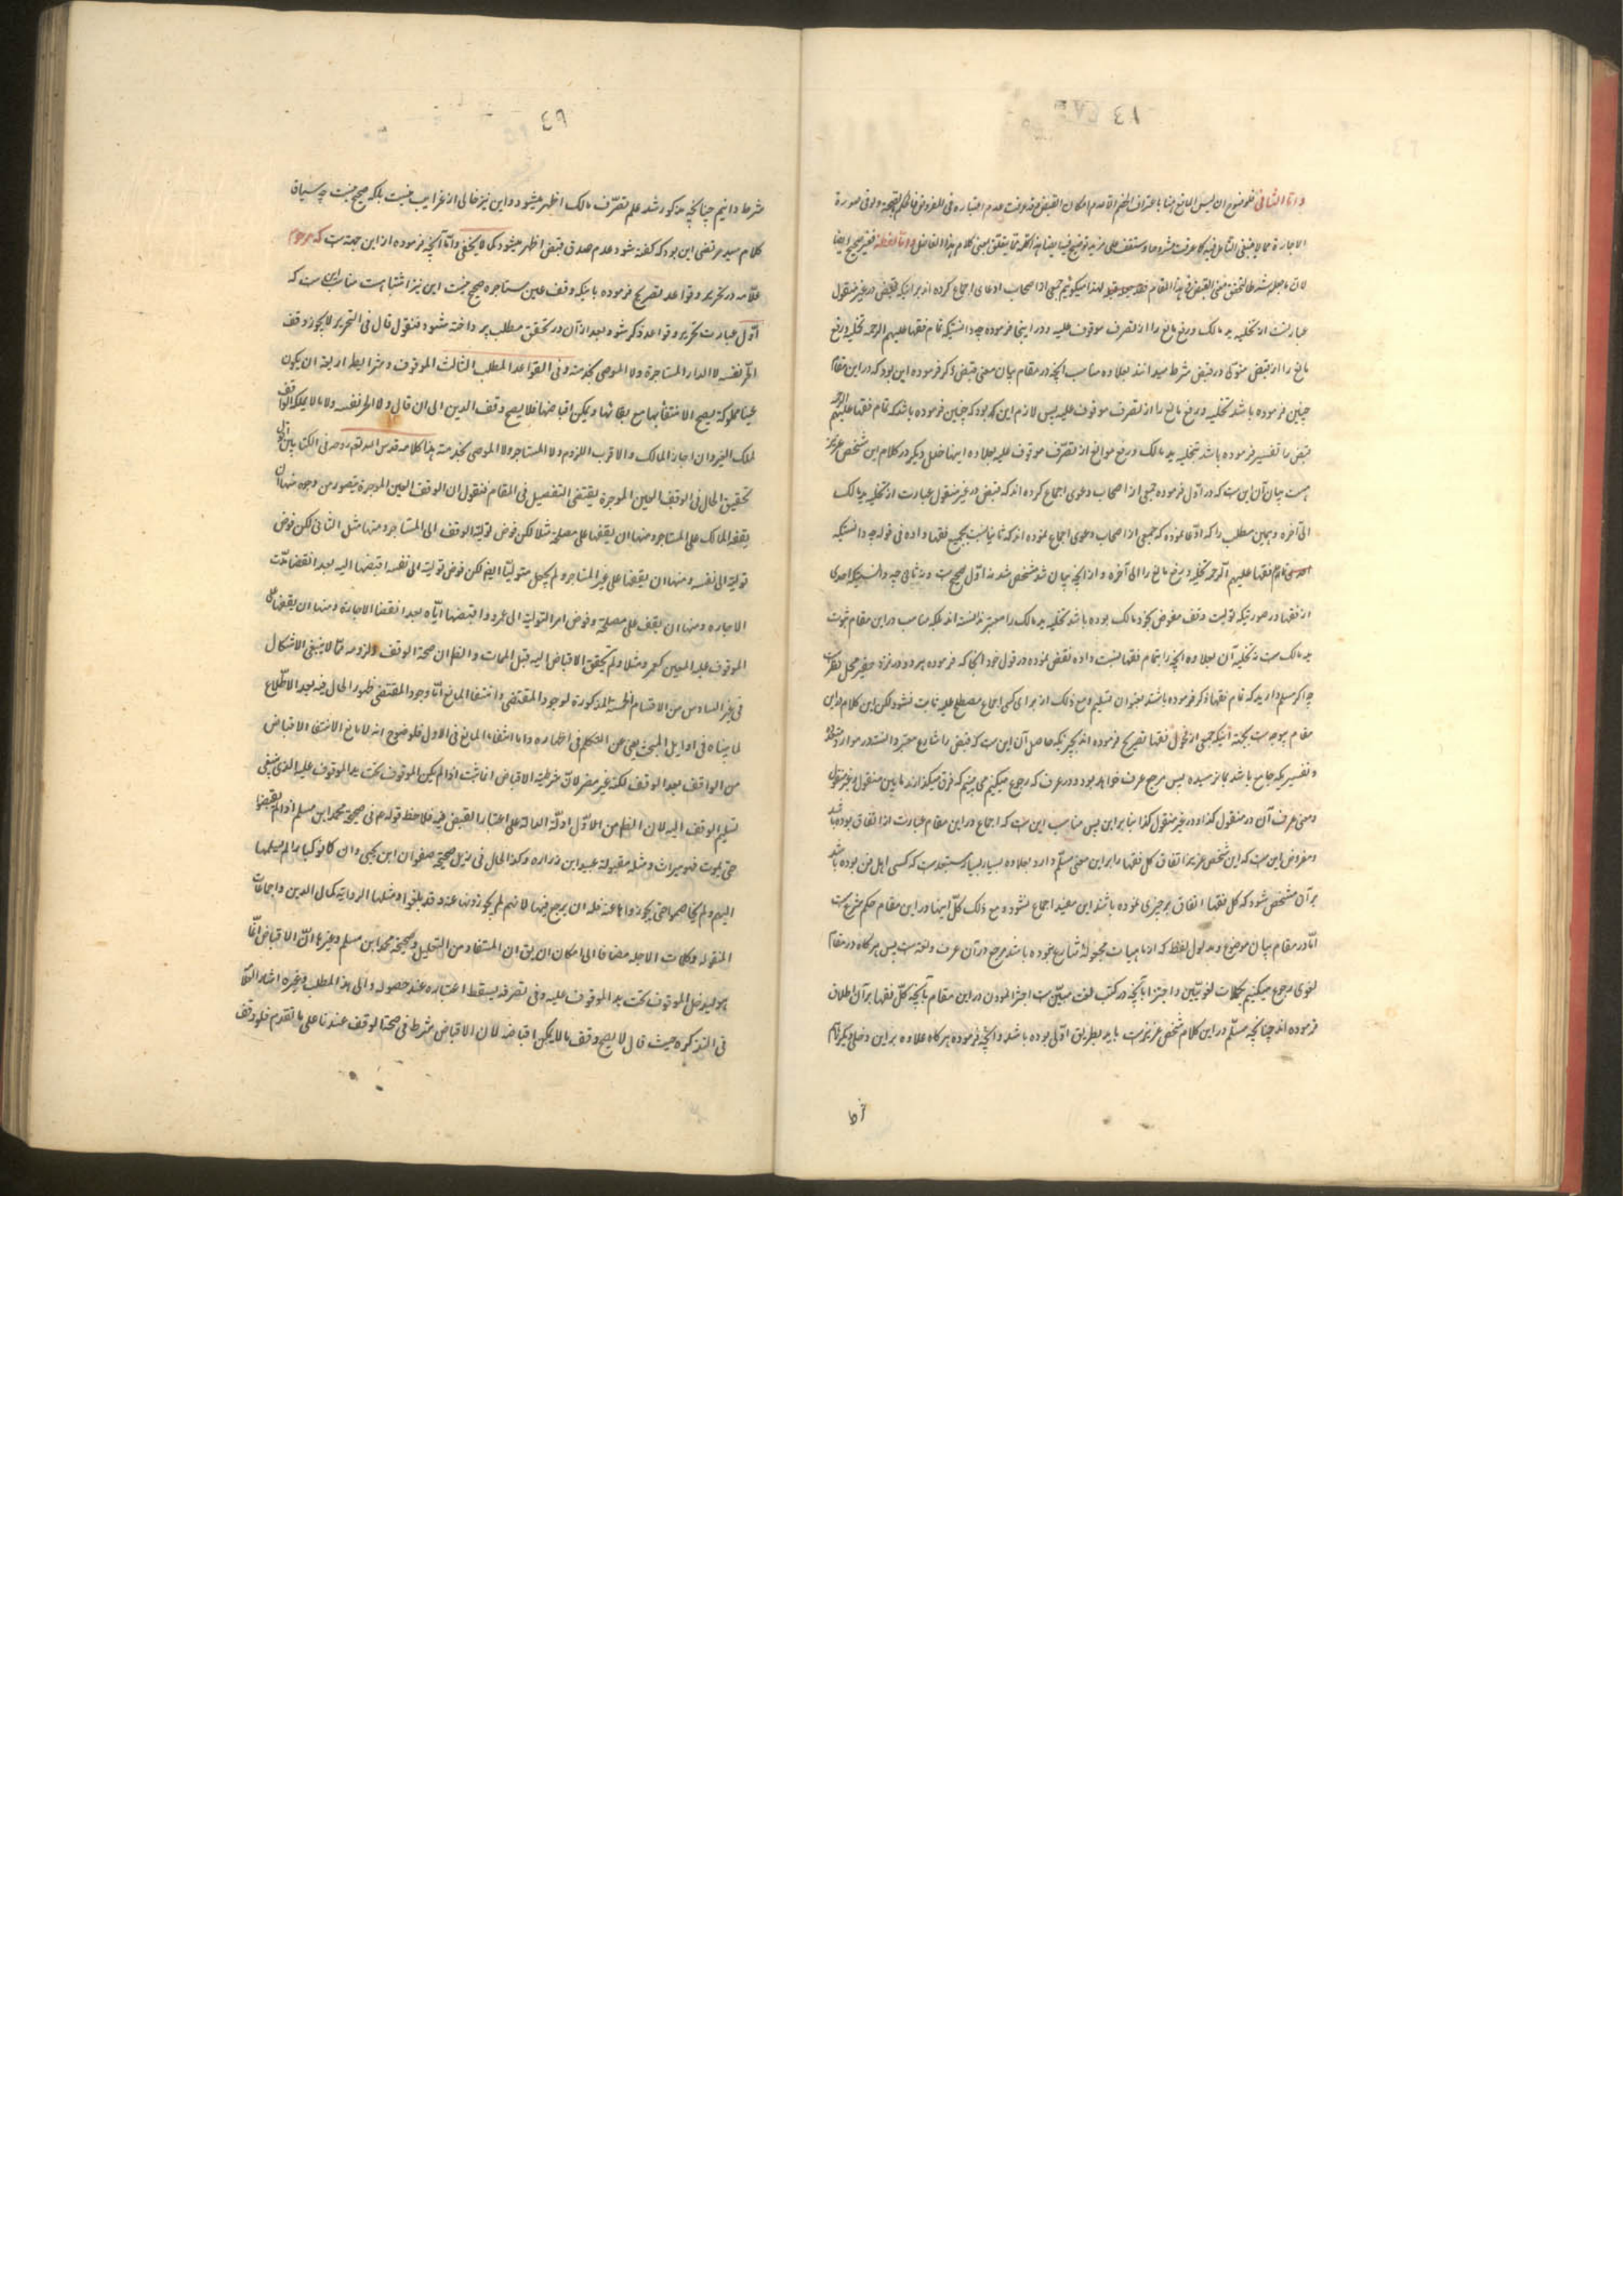 واما الثانی فلوضوح ان لیس المانع هنا باعتراف الخصم الا عدم امکان القبض وقد عرفت عدم اعتباره فی المفروض فالحکم بالصحة ولو فی صورة
الاجارة مما لا ینبغی التأمل فیه کما عرفت مشروحا وستقف علی مزید توضیح فیما
لان ما جعله شرطا لتحقق معنی القبض فی هذا المقام جمعی از اصحاب ادعای اجماع کرده اند بر اینکه قبض در غیر منقول
عبارتست از تخلیه ید مالک و رفع مانع را از تصرف موقوف علیه و در اینجا فرموده چه دانستیکه تمام فقها علیهم الرحمه تخلیه و رفع
مانع را از قبض متولی در قبض شرط میدانند بعلاوه مناسب آنچه در مقام بیان معنی قبض ذکر فرموده این بود که در این مقام
چنین فرموده باشد تخلیه و رفع مانع را از تصرف موقوف علیه پس لازم این که بود که چنین فرموده باشد که تمام فقها علیهم الرحمه
قبض را تفسیر فرموده باشند بتخلیه ید مالک و رفع موانع از تصرف موقوف علیه بعلاوه اینها خلل دیگر در کلام این شخص عزیز
هست بیان آن این ست که در اول فرموده جمعی از اصحاب دعوی اجماع کرده اند که قبض در غیر منقول عبارت از تخلیه ید مالک
الی آخره و همین مطلب را که ادعا نموده که جمعی از اصحاب دعوی اجماع نموده اند که ثانیا نسبت بجمیع فقها داده فی قوله چه دانستیکه
تمام فقها علیهم الرحمه تخلیه و رفع مانع را الی آخره و از آنچه بیان شد مشخص شد نه اول صحیح ست و نه ثانی چه دانستیکه احدی
از فقها در صورتیکه تولیت وقف مفوض بخود مالک بوده باشد تخلیه ید مالک را معتبر ندانسته اند بلکه مناسب در این مقام ثبوت
ید مالک ست نه تخلیه آن بعلاوه آنچه را بتمام فقها نسبت داده نقض نموده در قول خود آنجا که فرموده هر دو در نزد حقیر محل نظرست
چه اگر مسلم دارید که تمام فقها ذکر فرموده باشند بعنوان تسلیم و مع ذلک از برای کسی اجماع مصطلح علیه ثابت نشود لکن این کلام در این
مقام بوجه ست بجهة آنیکه جمعی از فحول فقها تصریح فرموده اند بچیزیکه حاصل آن این ست که قبض را شارع معتبر دانسته در موارد متعدده
و تفسیریکه جامع باشد بما نرسیده پس مرجع عرف خواهد بود و در عرف که رجوع میکنیم می بینیم که فرق میگذارند مابین منقول و غیر منقول
و معنی عرف آن در منقول کذا و در غیر منقول کذا بنابراین پس مناسب این ست که اجماع در این مقام عبارت از اتفاق بوده باشد
و مفروض این ست که این شخص عزیز اتفاق کل فقها را بر این معنی مسلم دارد بعلاوه بسیار بسیار مستبعد ست که کسی اهل فن بوده باشد
بر آن مشخص شود که کل فقها اتفاق بر چیزی نموده باشند این مفید اجماع نشود و مع ذلک کل اینها در این مقام حکم شرع ست
اما در مقام بیان موضوع و مدلول لفظ که از ماهیات مجعوله شارع نبوده باشد مرجع در آن عرف و لغة ست پس هرگاه در مقام
لغوی رجوع میکنیم بکلمات لغویین و اجتزا بآنچه در کتب لغت مبین ست اجتزا نمودن در این مقام بآنچه کل فقها بر آن اطلاق
فرموده اند چنانچه مسلم در این کلام شخص عزیزست باید بطریق اولی بوده باشد و آنچه فرموده هرگاه علاوه بر این دخلی دیگر تمام
شرط دانیم چنانچه مذکور شد علم تصرف مالک اظهر میشود و این نیز خالی از غرایب نیست بلکه صحیح نیست چه سیاق
کلام سید مرتضی این بود که گفته شود عدم صدق قبض اظهر میشود کما لا یخفی واما آنچه فرموده از این جهتست که مرحوم
علامه در تحریر و قواعد تصریح فرموده باینکه وقف عین مستاجره صحیح نیست این نیز اشتباه ست مناسب این ست که
اول عبارت تحریر و قواعد ذکر شود بعد از آن در تحقق مطلب پرداخته شود فنقول قال فی التحریر لا یجوز وقف
الحر نفسه لا الدار المستاجرة ولا الموصی بخدمته وفی القواعد المطلب الثالث الموقوف وشرایطه اربعة ان یکون
عینا مملوکة یصح الانتفاع بها مع بقائها ویمکن اقباضها فلا یصح وقف الدین الی ان قال ولا الحر نفسه ولا ما لا یملکه الواقف
لملک الغیر وان اجاز المالک والاقرب اللزوم ولا المستاجر ولا الموصی بخدمته هذا کلامه قدس الله تعالی روحه فی الکتابین اقول
تحقیق الحال فی الوقف العین الموجرة یقتضی التفصیل فی المقام فنقول ان الوقف العین الموجرة یتصور من وجوه منها ان
یقفه المالک علی المستاجر ومنها ان یقفها علی مصلحة مثلا لکن فوض تولیة الوقف الی المستاجر ومنها مثل الثانی لکن فوض
تولیة الی نفسه ومنها ان یقفها علی غیر المستاجر ولم یجعل متولیا ایضا لکن فوض تولیته الی نفسه اقبضها الیه بعد انقضاء مدت
الاجاره ومنها ان یقف علی مصلحة وفوض امر التولیة الی عمرو واقبضها ایاه بعد انقضا الاجارة ومنها ان یقفها علی
الموقوف علیه المعین کعمرو مثلا ولم یتحقق الاقباض الیه قبل الممات والظ ان صحة الوقف ولزومه مما لا ینبغی الاشکال
فی غیر السادس من الاقسام الخمسة المذکورة لوجود المقتضی وانتفا المانع اما وجود المقتضی فظهور الحال فیه بعد الاطلاع
لما بیناه فی اوایل المبحث یغنی عن التکلم فی اظهاره واما انتفاء المانع فی الاول فلوضوح انه لا مانع الا انتفاء الاقباض
من الواقف بعد الوقف لکنه غیر مضر لان شرطیة الاقباض انما ثبت اذا لم یکن الموقوف تحت ید الموقوف علیه الذی ینبغی
تسلیم الوقف الیه لان الظ من الاول ادلة الدالة علی اعتبار القبض فیه فلاحظ قوله ع فی صحیحة محمد ابن مسلم اذا لم یقبضوا
حتی یموت فهو میراث ومثله مقبولة عبید ابن زراره وکذا الحال فی ذیل صحیحة صفوان ابن یحیی وان کانوا کبارا لم یسلمها
الیهم ولم یخاصموا حتی یحوزوها عنه فله ان یرجع فیها لانهم لم یحوزونها عنه وقد بلغوا ومثلها الروایة کمال الدین واجماعات
المنقوله وکلمات الاجله مضافا الی امکان ان یق ان المستفاد من التعلیل فی صحیحة محمد ابن مسلم وغیرها ان الاقباض انما
هو لیدخل الموقوف تحت ید الموقوف علیه وفی تصرفه یسقط اعتباره عند حصوله والی هذا المطلب وغیره اشار العلامة
فی التذکره حیث قال لا یصح وقف ما لا یمکن اقباضه لان الاقباض شرط فی صحة الوقف عندنا علی ما تقدم فلو وقف